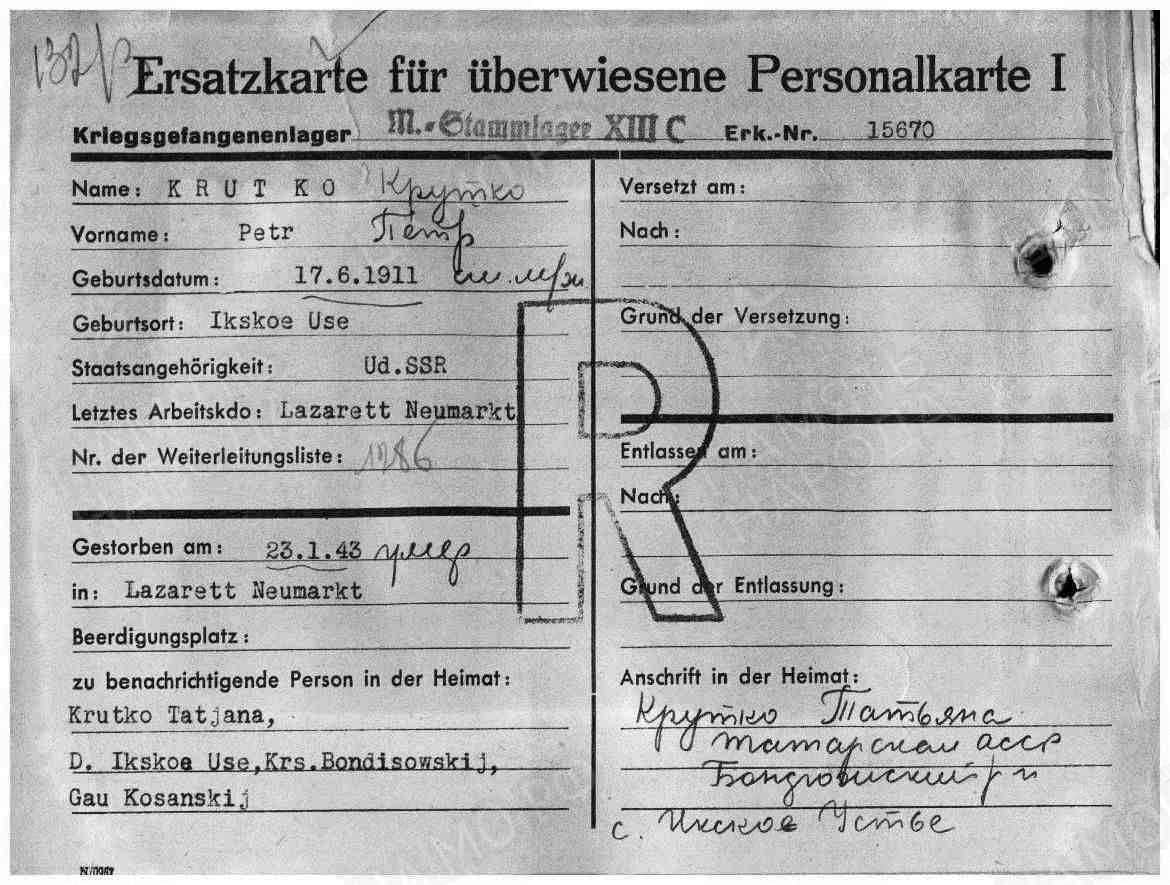 132
Ersatzkarte für überwiesene Personalkarte I
Kriegsgefangenenlager M.-Stammlager XIII C Erk.-Nr. 15670
Name: KRUT KO Крутко
Vorname: Petr Петр
Geburtsdatum: 17.6.1911
Geburtsort: Ikskoe Use
Staatsangehörigkeit: Ud.SSR
Letztes Arbeitskdo: Lazarett Neumarkt
Nr. der Weiterleitungsliste: 1286
Gestorben am: 23.1.43 умер
in: Lazarett Neumarkt
Beerdigungsplatz:
zu benachrichtigende Person in der Heimat:
Krutko Tatjana,
D. Ikskoe Use,Krs.Bondisowskij,
Gau Kosanskij
Versetzt am:
Nach:
Grund der Versetzung:
R
Entlassen am:
Nach:
Grund der Entlassung:
Anschrift in der Heimat:
Крутко Татьяна
Татарская АССР
Бондюжский р-н
с. Икское Устье